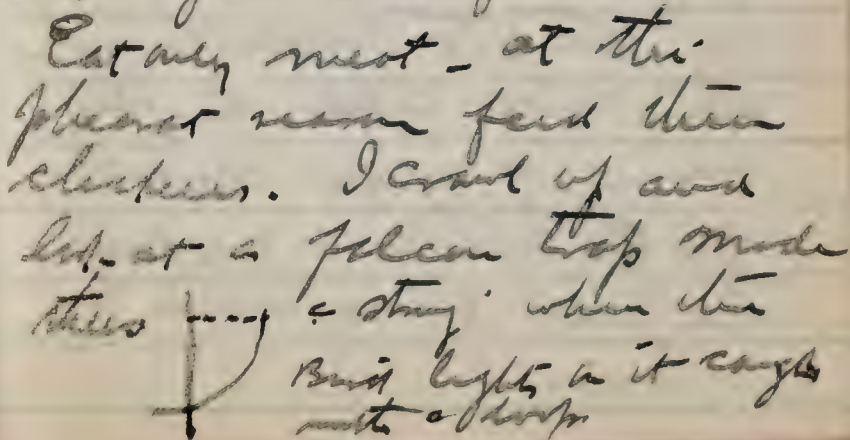 Eat only meat - at this
season feed them
chickens. I crawl up and
look at a falcon trap made
thus c̄ a string when the
Bird lights on it caught
with a loop